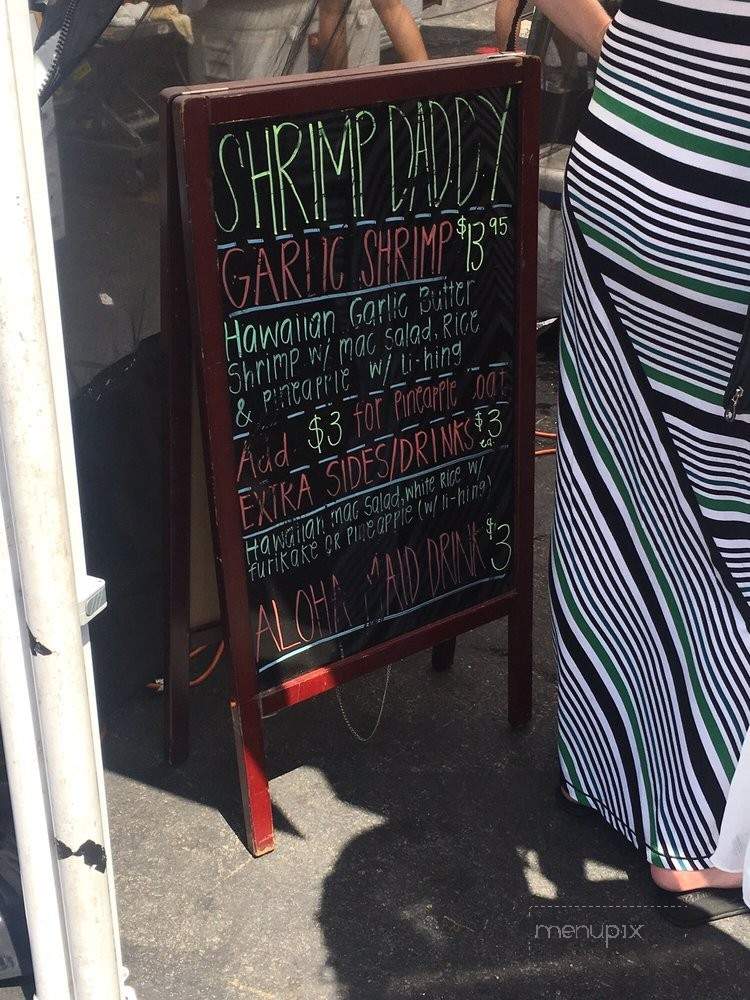 SHRIMP DADDY
GARLIC SHRIMP $13.95
Hawaiian Garlic Butter
Shrimp w/ mac salad, Rice
& Pineapple w/ li-hing
Add $3 for Pineapple Boat
EXTRA SIDES/DRINKS $3 ea.
Hawaiian mac salad, white Rice w/
furikake OR Pineapple (w/ li-hing)
ALOHA MAID DRINK $3
menupix